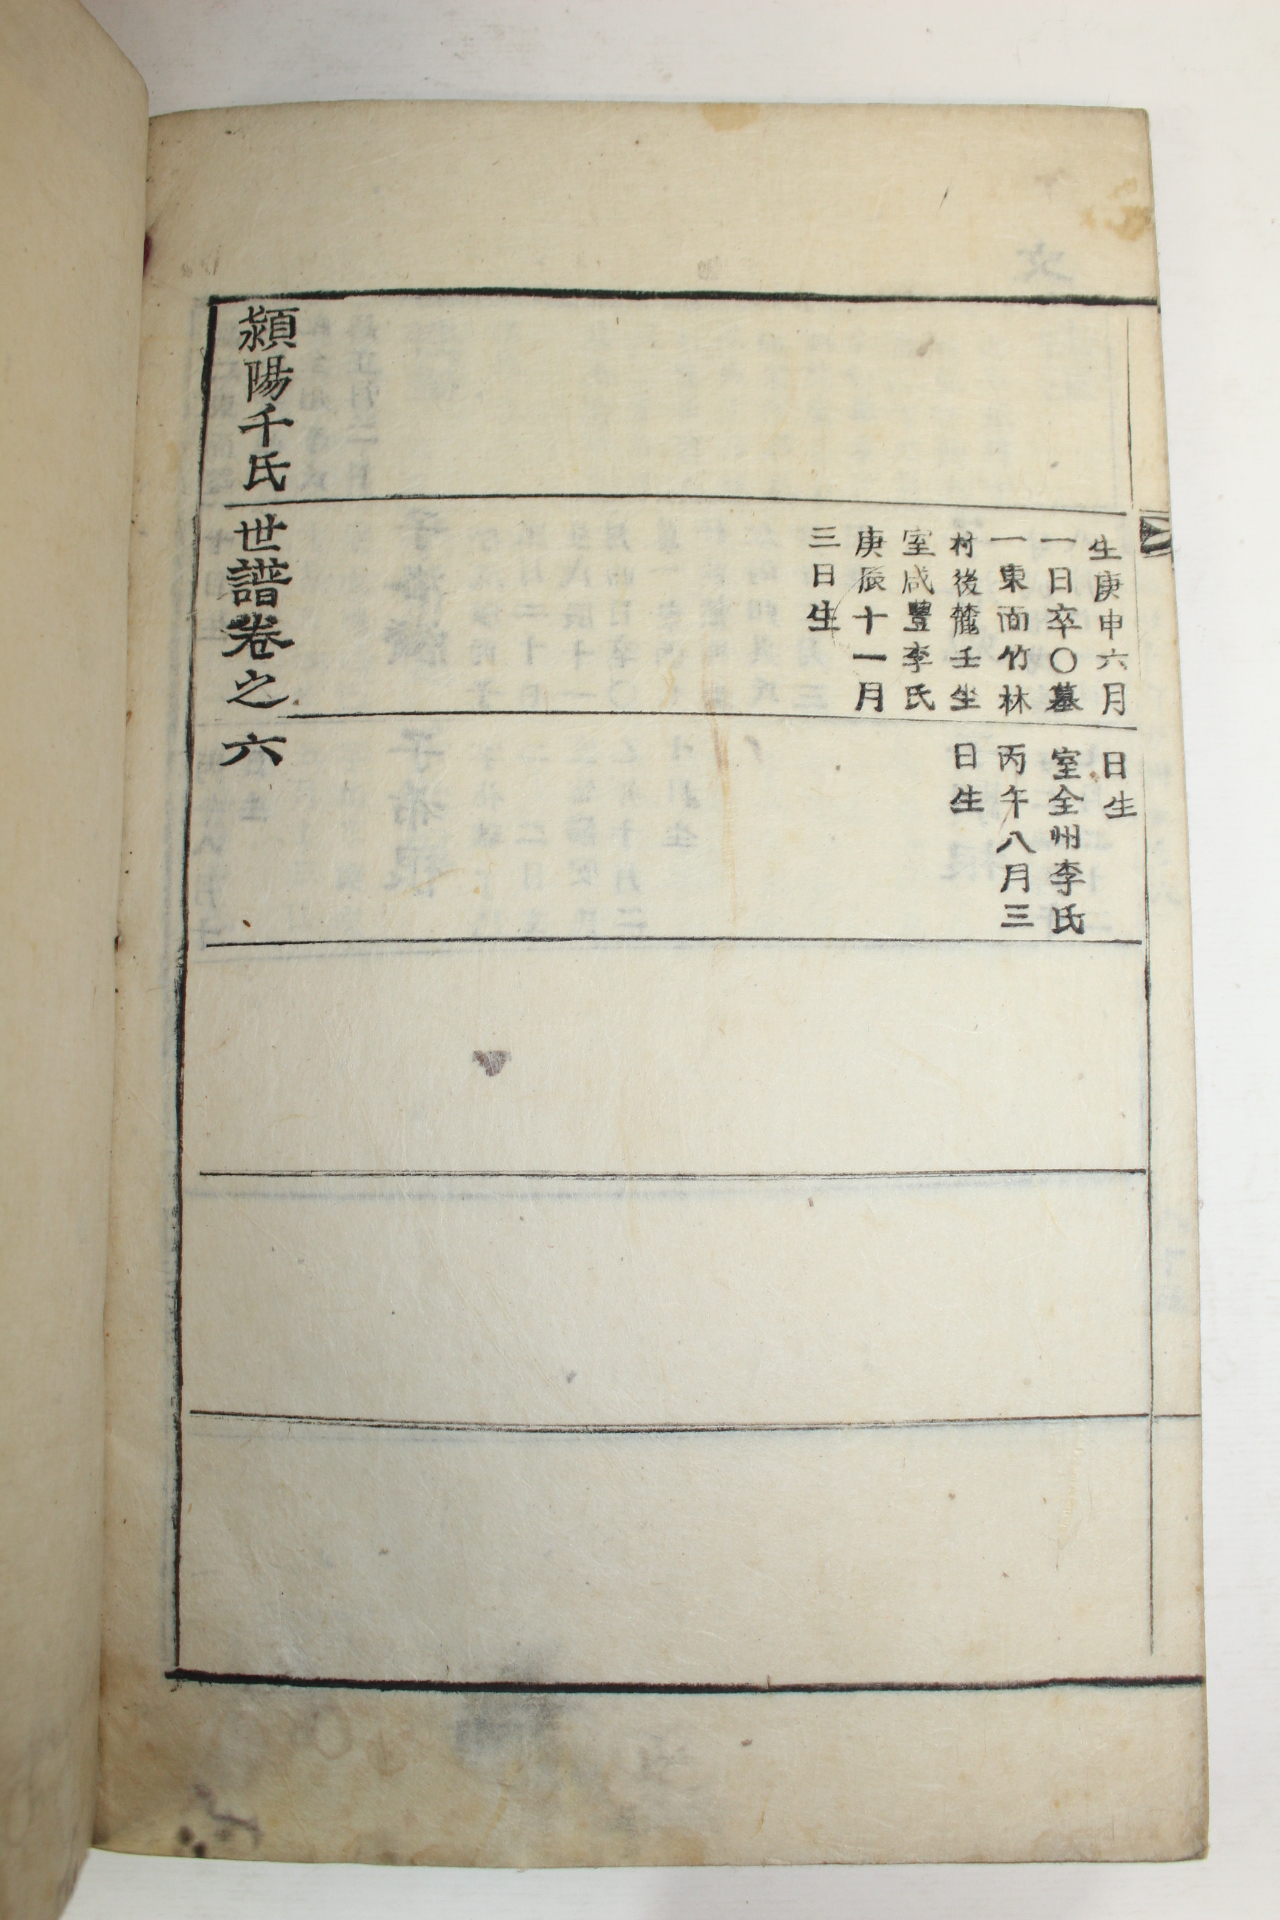 生庚申六月
一日卒〇墓
一東面竹林
村後麓壬坐
室咸豐李氏
庚辰十一月
三日生
日生
室全州李氏
丙午八月三
日生
潁陽千氏世譜卷之六